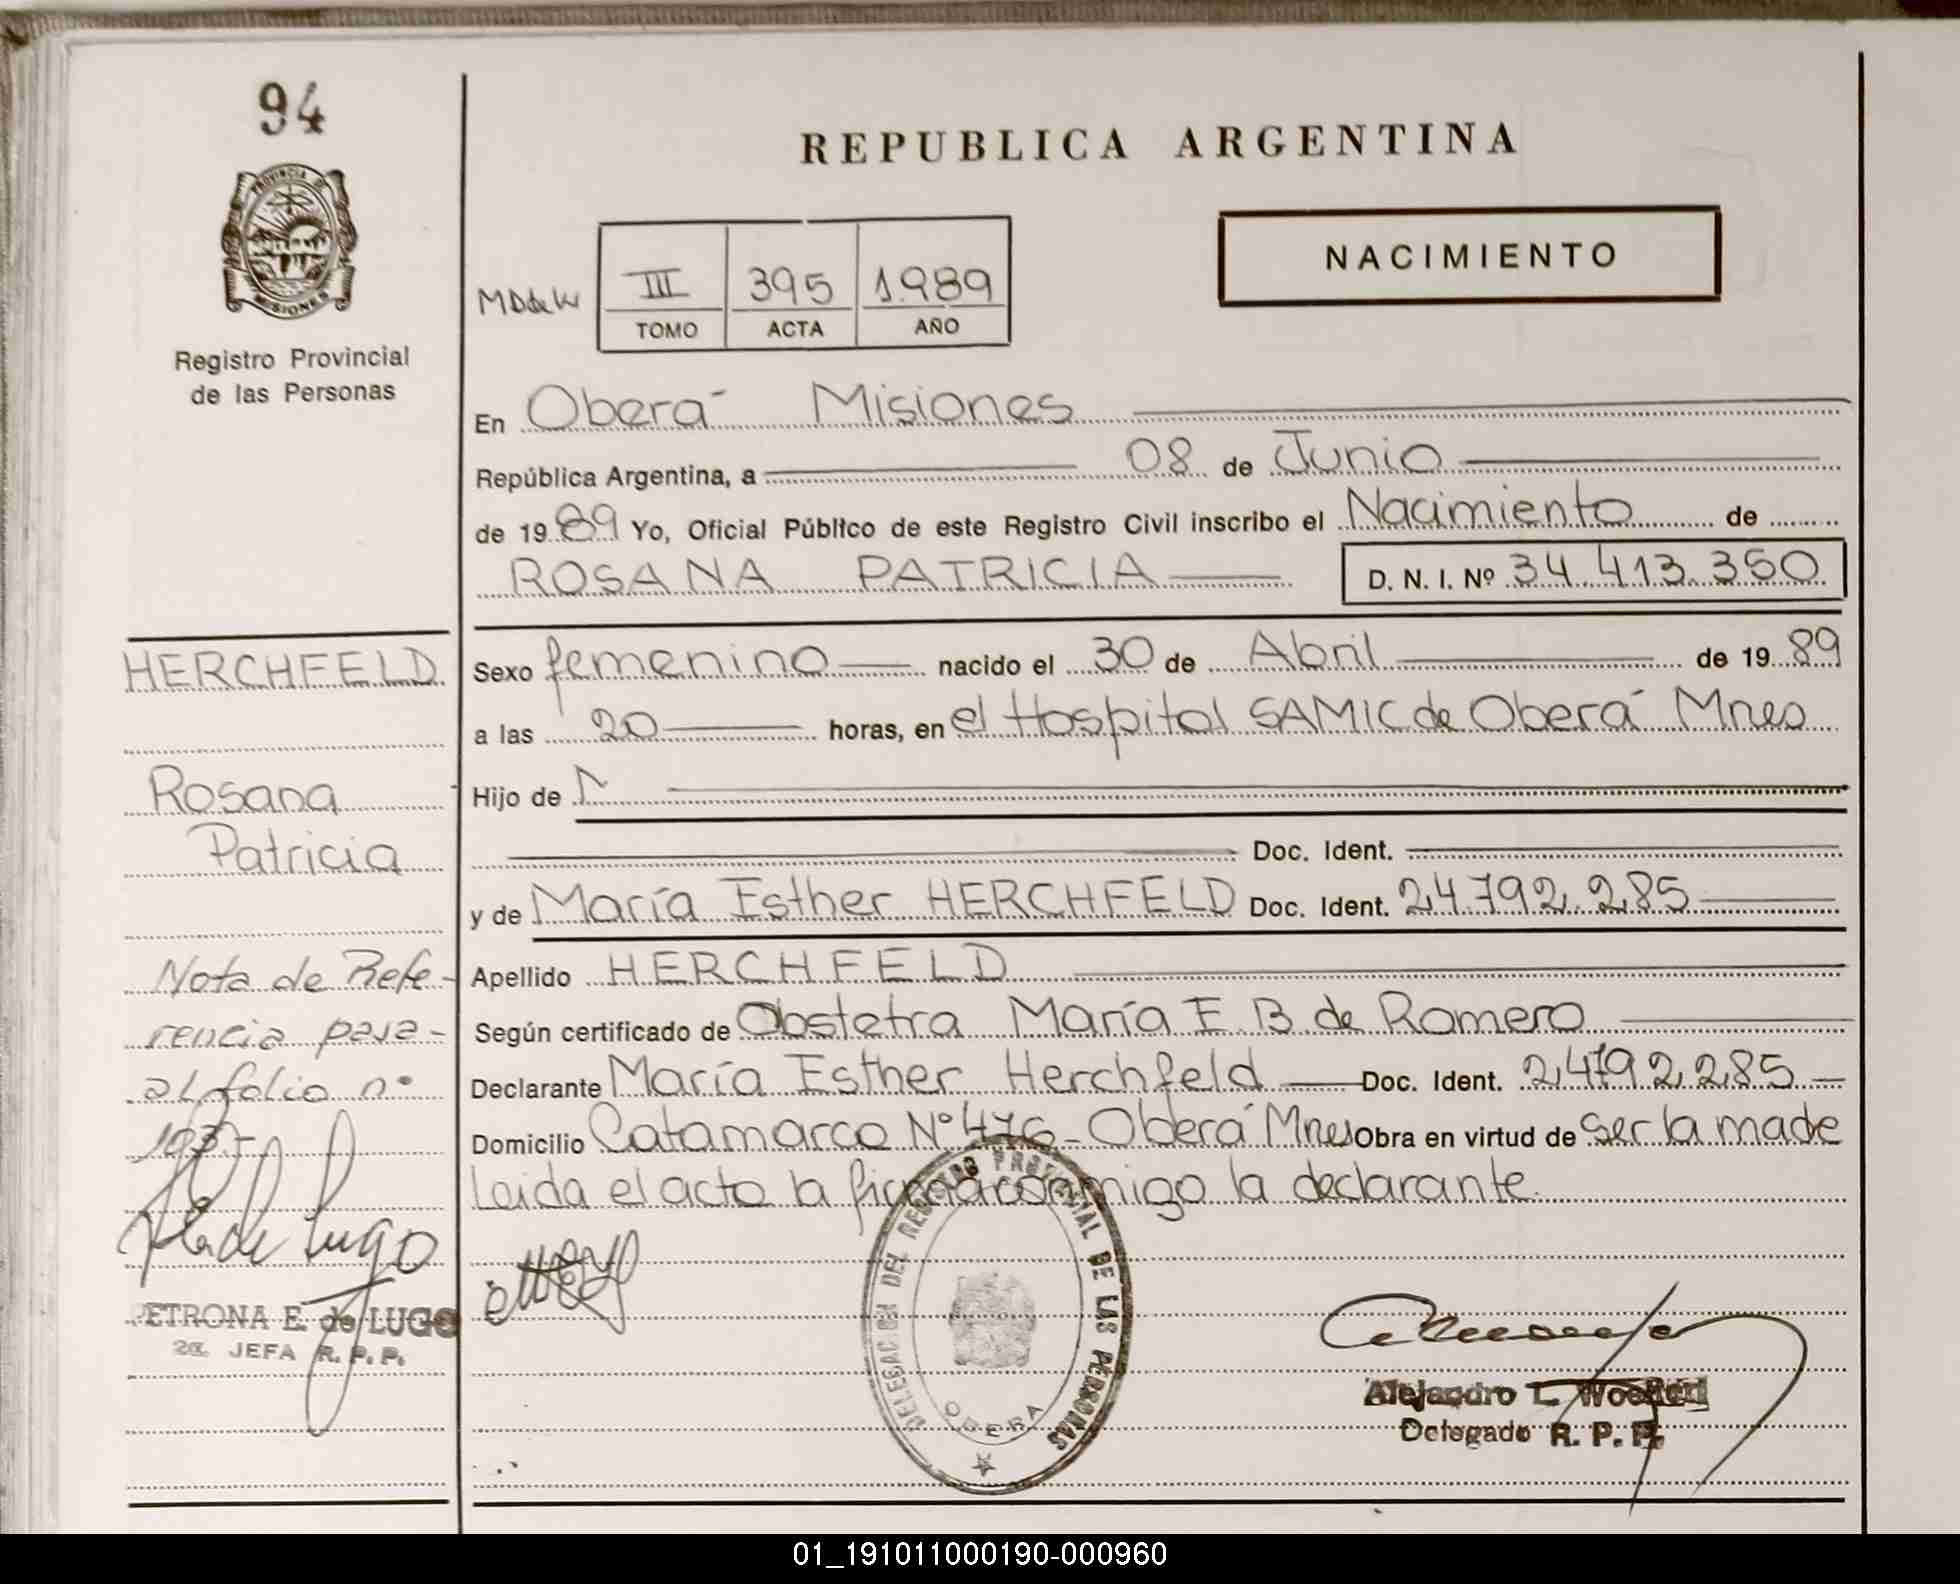 94
PROVINCIA DE
MISIONES
Registro Provincial
de las Personas
REPUBLICA ARGENTINA
NACIMIENTO
III 395 1.989
TOMO ACTA AÑO
En Oberá Misiones
República Argentina, a 08 de Junio
de 19 89 Yo, Oficial Público de este Registro Civil inscribo el Nacimiento de
ROSANA PATRICIA D. N. I. Nº 34.413.350
HERCHFELD
Sexo femenino nacido el 30 de Abril de 19 89
a las 20 horas, en el Hospital SAMIC de Oberá Mnes
Rosana
Patricia
Hijo de
Doc. Ident.
y de María Esther HERCHFELD Doc. Ident. 24.792.285
Nota de Refe-
rencia pasa-
al folio nº
Apellido HERCHFELD
Según certificado de Obstetra María E. B de Romero
Declarante María Esther Herchfeld Doc. Ident. 24.792.285
Domicilio Catamarca Nº 476 - Oberá Mnes Obra en virtud de ser la madre
Leida el acto la firma conmigo la declarante
PETRONA E. de LUGO
2a. JEFA R. P. P.
DELEGACION DEL REGISTRO PROVINCIAL DE LAS PERSONAS
OBERA
Alejandro L.
Delegado R. P. P.
01_191011000190-000960